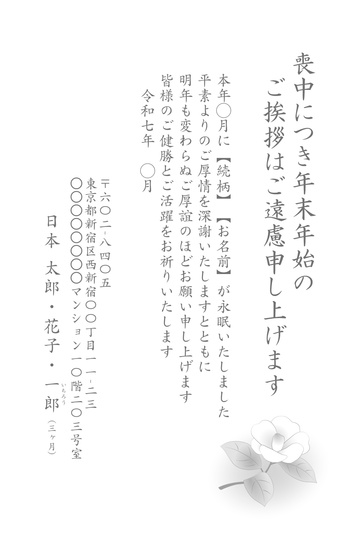 喪中につき年末年始の
ご挨拶はご遠慮申し上げます
本年〇月に【続柄】【お名前】が永眠いたしました
平素よりのご厚情を深謝いたしますとともに
明年も変わらぬご厚誼のほどお願い申し上げます
皆様のご健勝とご活躍をお祈りいたします
令和七年 〇月
〒六〇二-八四〇五
東京都新宿区西新宿〇〇丁目一一-二三
〇〇〇〇〇〇〇マンション一〇階二〇三号室
日本 太郎・花子・一郎(三ヶ月)
いちろう